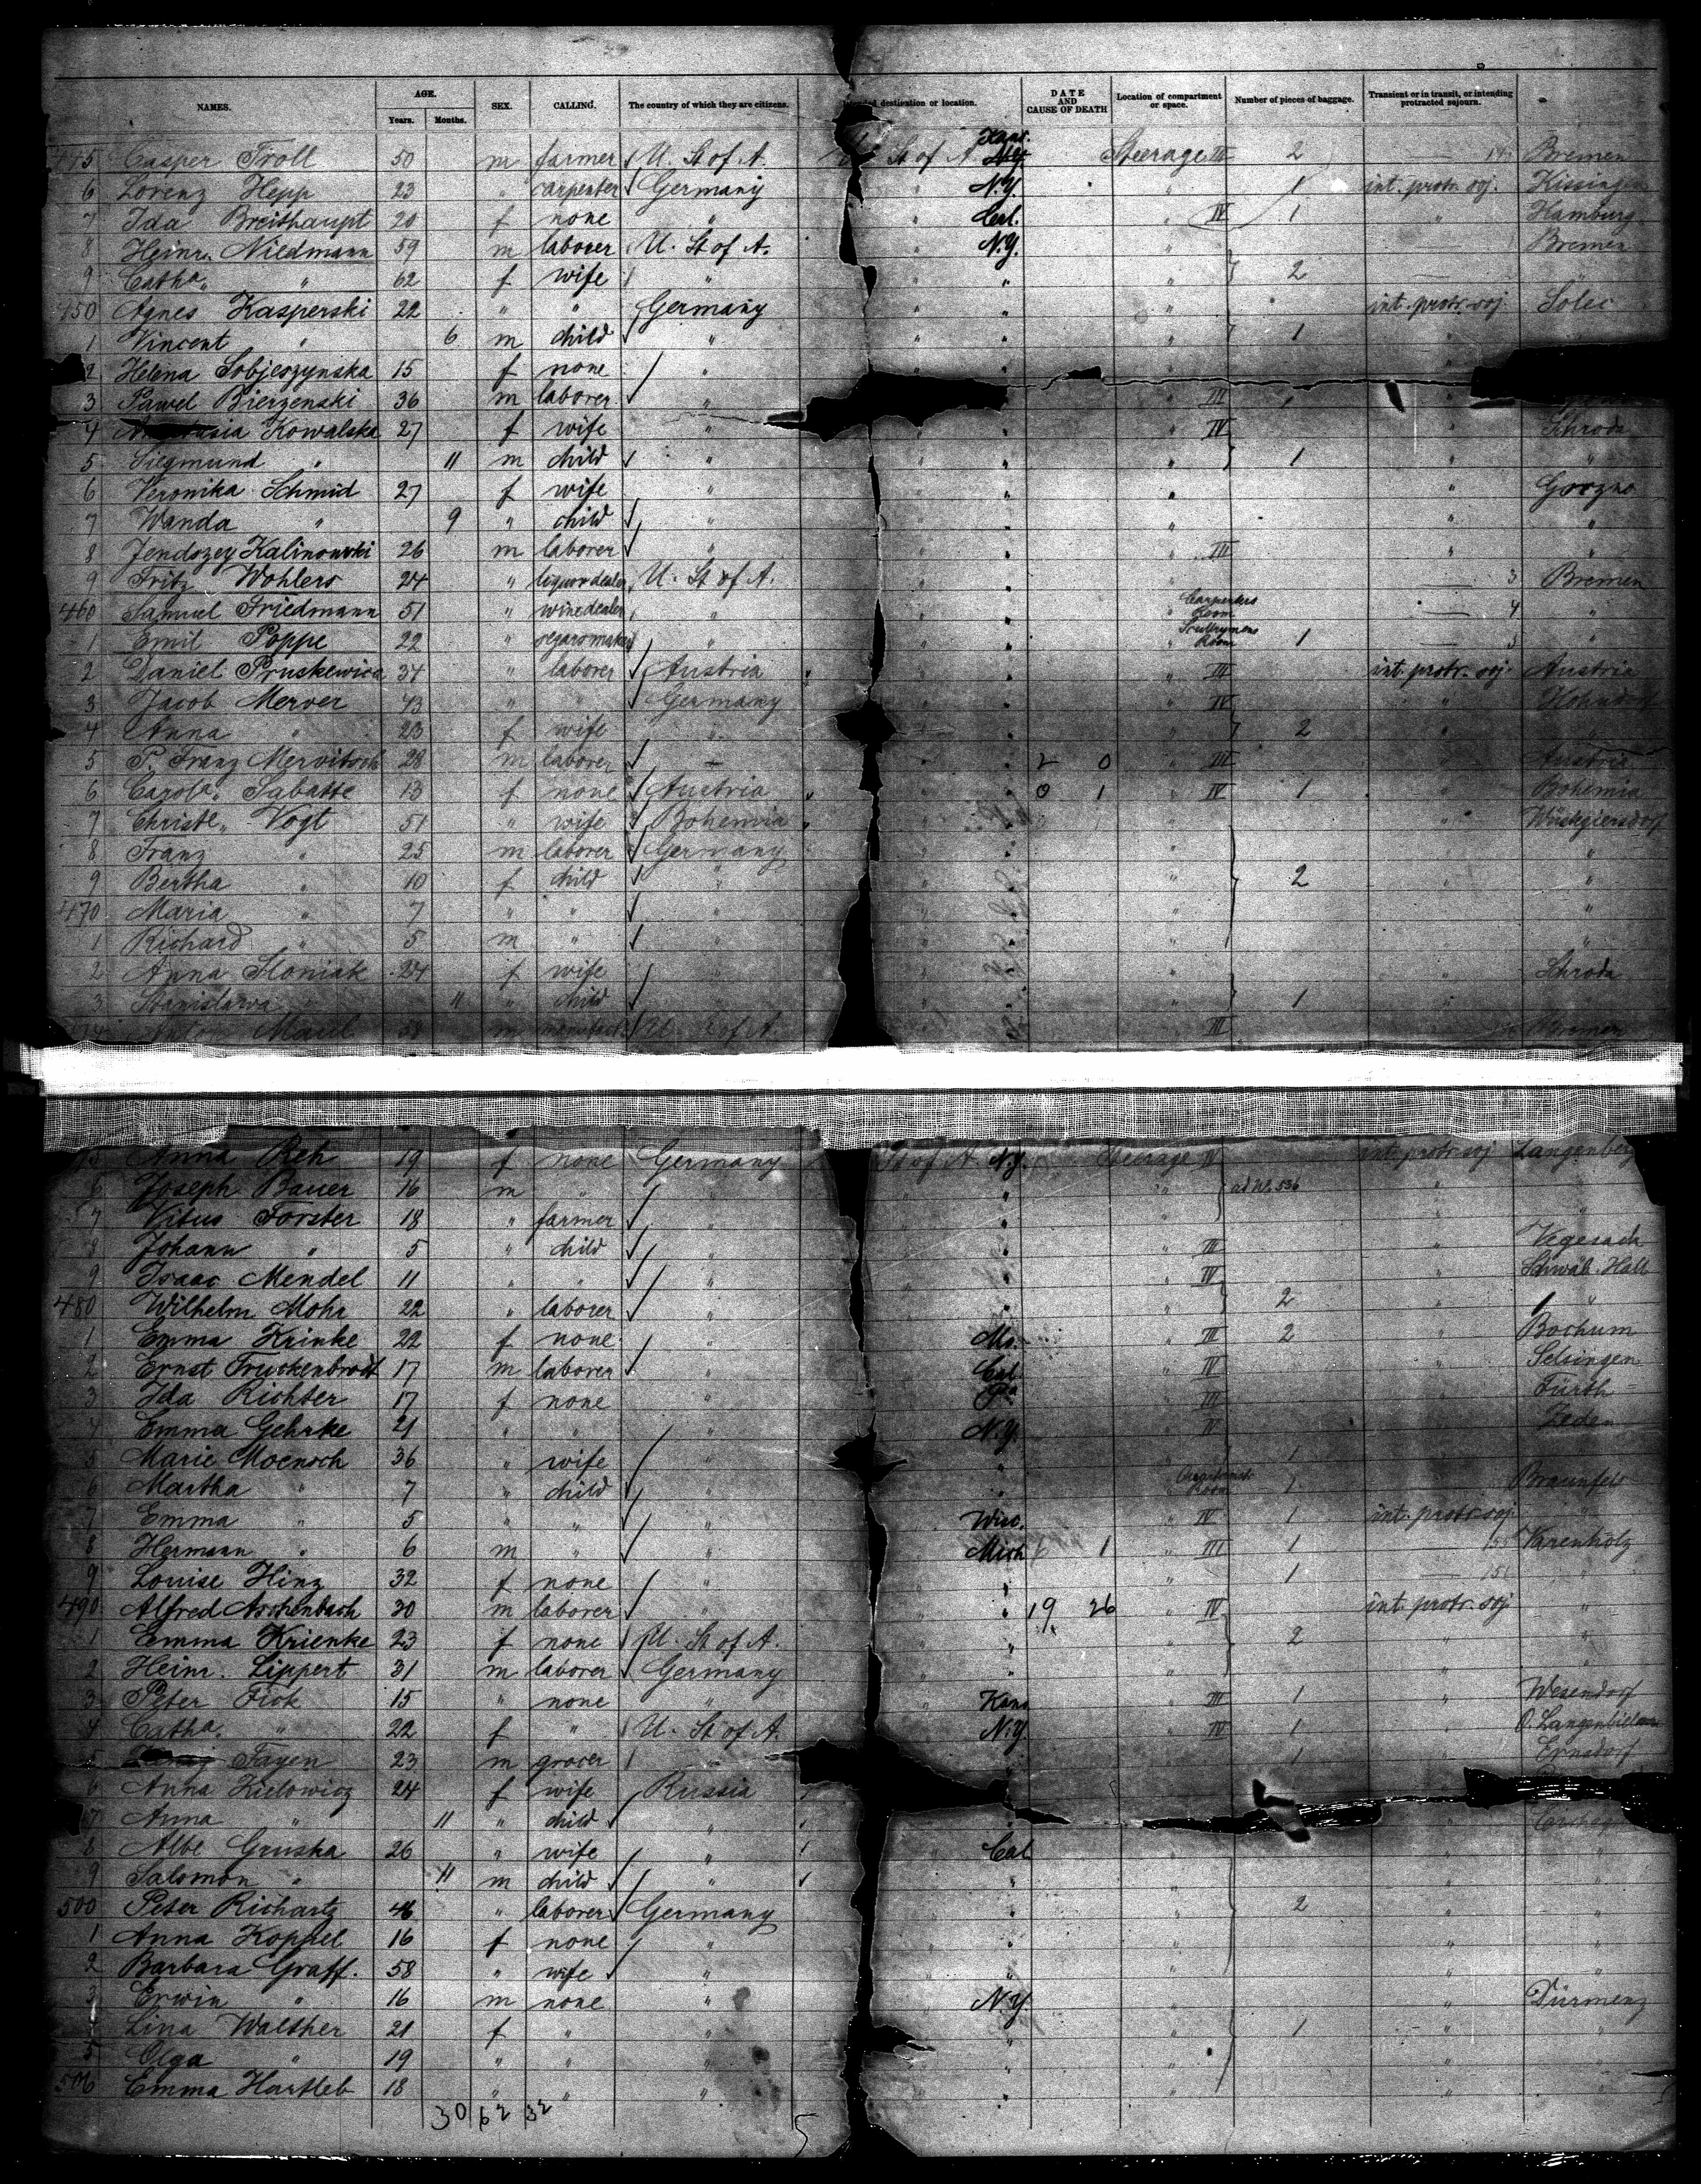 NAMES. AGE. Years. Months. SEX. CALLING. The country of which they are citizens. destination or location. DATE AND CAUSE OF DEATH Location of compartment or space. Number of pieces of baggage. Transient or in transit, or intending protracted sojourn.
445 Casper Troll 50 m farmer U. St of A. St of A Kans. N.Y. Steerage III 2 Bremen
6 Lorenz Hepp 23 " carpenter Germany " N.Y. " 1 int. protr. soj. Kissingen
7 Ida Breithaupt 20 f none " " Cal. " IV 1 " Hamburg
8 Heinr. Niedmann 59 m laborer U. St of A. " N.Y. " Bremen
9 Catha. " 62 f wife " " " " 2 — "
450 Agnes Kasperski 22 " " Germany " " " int. protr. soj. Solec
1 Vincent " 6 m child " " " " 1 "
2 Helena Sobjeszynska 15 f none "
3 Pawel Bierzenski 36 m laborer " " III 1 "
4 Kowalska 27 f wife " " " IV " Schroda
5 Siegmund " 11 m child " " " " 1 " "
6 Veronika Schmid 27 f wife " " " " " Gorzno
7 Wanda " 9 " child " " " " " "
8 Jendszey Kalinowski 26 m laborer " " " " III " "
9 Fritz Wohlers 24 " liquordealer U. St of A. " " " — 3 Bremen
460 Samuel Friedmann 51 " winedealer " " " Carpenters Room — 4 "
1 Emil Poppe 22 " segarsmaker " " " Room 1 — "
2 Daniel Pruskewicz 34 " laborer Austria " " " III int. protr. soj. Austria
3 Jacob Merver 43 " " Germany " " " IV "
4 Anna " 23 f wife " " " " 2 " "
5 P. Franz Mervitsch 28 m laborer — " " 2 0 " III " Austria
6 Carola. Sabatte 13 f none Austria " " 0 1 " IV 1 " Bohemia
7 Christe. Vogt 51 " wife Bohemia " " " " Wüstegiersdorf
8 Franz " 25 m laborer Germany " " " " "
9 Bertha " 10 f child " " " " 2 " "
470 Maria " 7 " " " " " " " "
1 Richard " 5 m " " " " " " "
2 Anna Sloniak 24 f wife " " " " " Schroda
3 Stanislawa " 11 " child " " " " 1 " "
Maul 58 m U. St of A. III Bremen
Anna Reh 19 f none Germany St of A N.Y. Steerage IV int. protr. soj Langenberg
6 Joseph Bauer 16 m " " " " " ad No. 536 " "
7 Vitus Forster 18 " farmer " " " " " "
8 Johann " 5 " child " " " " III " Vegesack
9 Isaac Mendel 11 " " " " " " IV " Schwäb. Hall
480 Wilhelm Mohr 22 " laborer " " " " 2 " "
1 Emma Krinke 22 f none " " Mo. " III 2 " Bochum
2 Ernst Truckenbrodt 17 m laborer " " Cal. " IV " Selsingen
3 Ida Richter 17 f none " " Pa " III " Fürth
4 Emma Gehrke 21 " " " " N.Y. " IV " Zeden
5 Marie Moensch 36 " wife " " " " 1 "
6 Martha " 7 " child " " " Room 1 Braunfels
7 Emma " 5 " " " " Wisc. " IV 1 int. protr. soj "
8 Hermann " 6 m " " " Mich 6 1 " III 1 Varenholz
9 Louise Hinz 32 f none " " " 1 — "
490 Alfred Aschenbach 30 m laborer " " " 19 26 " IV int. protr. soj "
1 Emma Krienke 23 f none U. St of A. " " " 2 " "
2 Heinr. Lippert 31 m laborer Germany " " " " "
3 Peter Fick 15 " none " " Kans " III 1 " Wesendorf
4 Catha. " 22 f " U. St of A. " N.Y. " IV 1 " O. Langenbielau
5 Fayen 23 m grocer 1 " Ernsdorf
6 Anna Zielowicz 24 f wife Russia
7 Anna " 11 " child " "
8 Albe Gruska 26 " wife " " Cal " "
9 Salomon " 11 m child " " " " " "
500 Peter Richartz 46 " laborer Germany " " " 2 " "
1 Anna Koppel 16 f none " " " " " "
2 Barbara Graff. 58 " wife " " " " " "
3 Erwin " 16 m none " " N.Y. " " Dürmenz
Lina Walther 21 f " " " " 1 " "
5 Olga " 19 " " " " " " " "
506 Emma Hartleb 18 " " " " " " " "
30 62 32 5